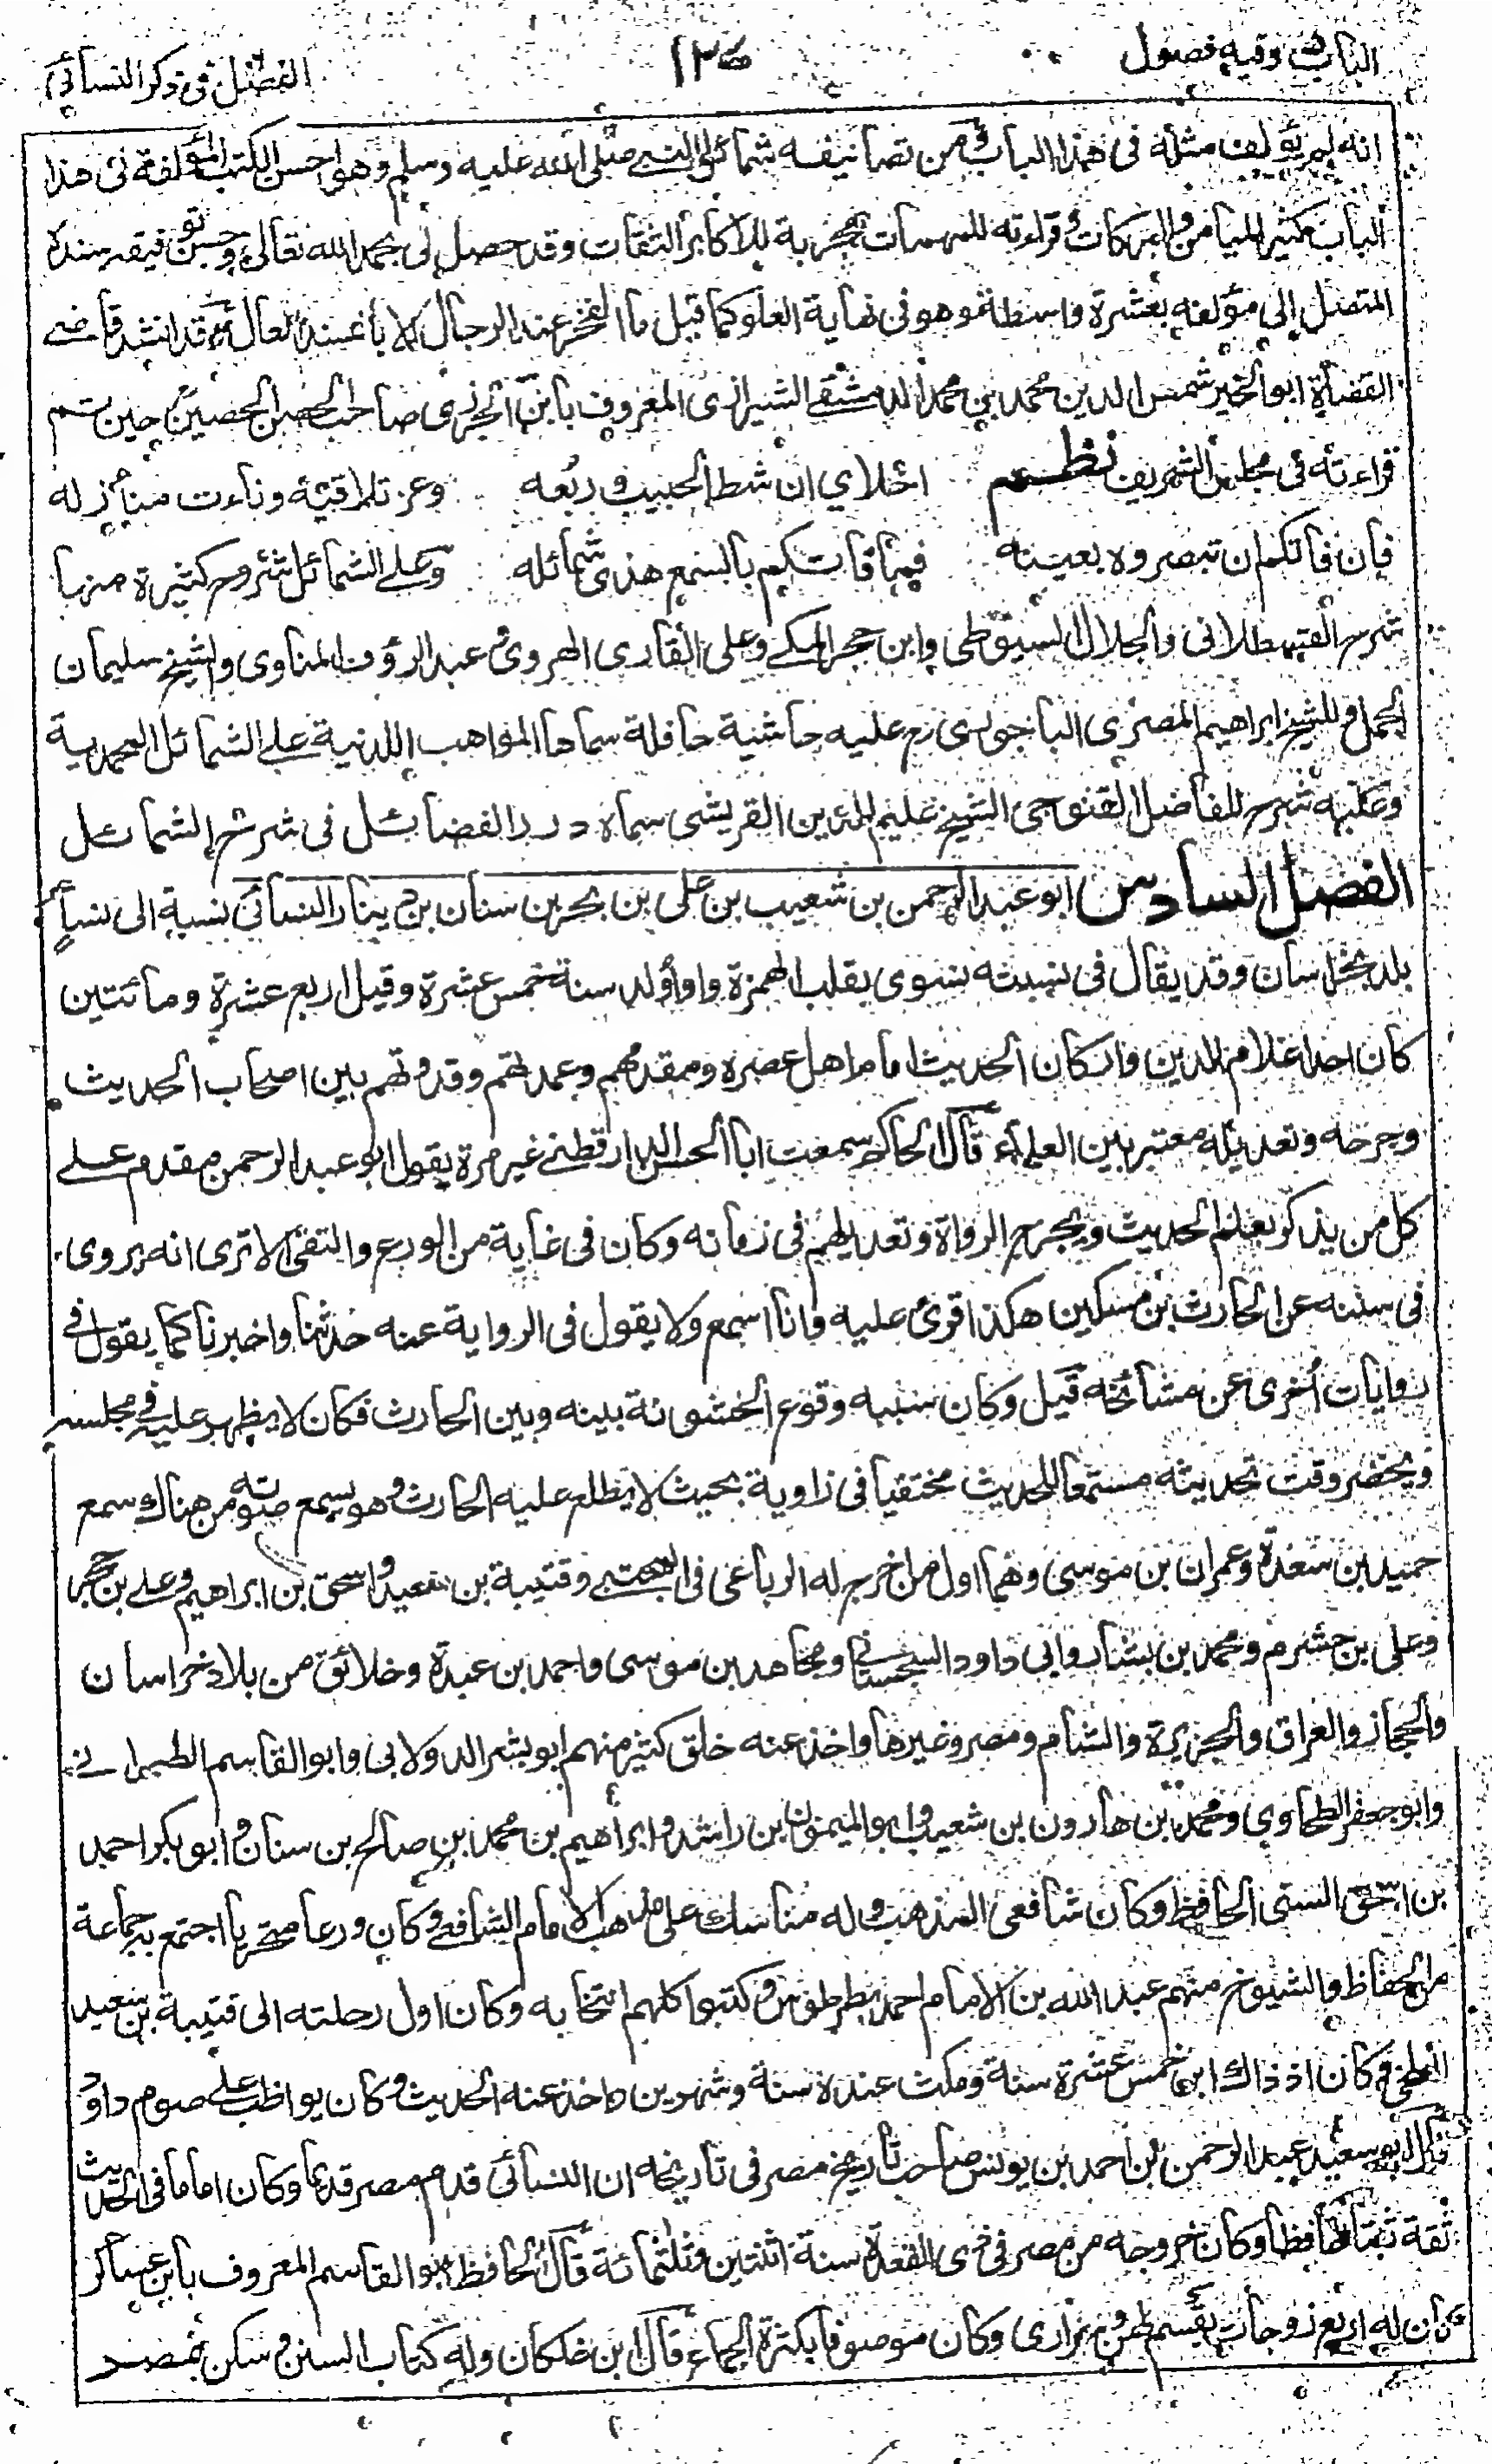 الباب وفيه فصول ١٢٦ الفصل في ذكر النسائي
انه لم يؤلف مثله في هذا الباب ومن تصانيفه شمائل النبي صلى الله عليه وسلم وهو احسن الكتب المؤلفة في هذا
الباب كثير الميامن والبركات وقراءته للمهمات مجربة للاكابر الثقات وقد حصل لي بحمد الله تعالى وحسن توفيقه سنده
المتصل الى مؤلفه بعشرة واسطة وهو في نهاية العلو كما قيل ما الفخر عند الرجال الا باغسنة العال وقد انشد قاضے
القضاة ابو الخير شمس الدين محمد بن محمد الدمشقي الشيرازى المعروف بابن الجزرى صاحب الحصن الحصين حين تم
قراءته في مجلس الشريف نظم اخلاي ان شط الحبيب وربعه وعز تلاقيه وناءت منازله
فان فاتكم ان تبصروه بعينه فما فاتكم بالسمع هذى شمائله وعلى الشمائل شروح كثيرة منها
شرح القسطلانى والجلال السيوطى وابن حجر المكے وعلى القارى الهروى وعبد الرؤف المناوى والشيخ سليمان
الجمل وللشيخ ابراهيم المصرى الباجورى رح عليه حاشية حافلة سماها المواهب اللدنية على الشمائل المحمدية
وعليه شرح للفاضل القنوجى الشيخ عليم الدين القريشى سماه درر الفضائل في شرح الشمائل
الفصل السادس ابو عبد الرحمن بن شعيب بن على بن بحر بن سنان بن دينار النسائى نسبة الى نسأ
بلد بخراسان وقد يقال في نسبته نسوى بقلب الهمزة واوا ولد سنة خمس عشرة وقيل اربع عشرة ومائتين
كان احد اعلام الدين واركان الحديث امام اهل عصره ومقدمهم وعمدتهم وقدوتهم بين اصحاب الحديث
وجرحه وتعديله معتبر بين العلماء قال الحاكم سمعت ابا الحسن الدارقطنے غير مرة يقول ابو عبد الرحمن مقدم علے
كل من يذكر بعلم الحديث وبجرح الرواة وتعديلهم في زمانه وكان في غاية من الورع والتقى الا ترى انه يروى
في سننه عن الحارث بن مسكين هكذا قرئ عليه وانا اسمع ولا يقول في الرواية عنه حدثنا واخبرنا كما يقول في
روايات اخرى عن مشائخه قيل وكان سببه وقوع الخشونة بينه وبين الحارث فكان لا يظهر عليه في مجلسه
ويحضر وقت تحديثه مستمعا للحديث مختفيا في زاوية بحيث لا يطلع عليه الحارث وهو يسمع صوته من هناك سمع
حميد بن سعدة وعمران بن موسى وهما اول من اخرج له الرباعى في المجتبے وقتيبة بن سعيد واسحق بن ابراهيم وعلے بن حجر
وعلى بن خشرم ومحمد بن بشار وابى داود السجستانى ومجاهد بن موسى واحمد بن عبدة وخلائق من بلاد خراسان
والحجاز والعراق والجزيرة والشام ومصر وغيرها واخذ عنه خلق كثير منهم ابو بشر الدولابى وابو القاسم الطبرانے
وابو جعفر الطحاوى ومحمد بن هارون بن شعيب وابو الميمون بن راشد وابراهيم بن محمد بن صالح بن سنان وابو بكر احمد
بن اسحق السنى الحافظ وكان شافعى المذهب وله مناسك على مذهب الامام الشافعے وكان ورعا متحريا اجتمع به جماعة
من الحفاظ والشيوخ منهم عبد الله بن الامام احمد بطرطوس وكتبوا كلهم انتخابه وكان اول رحلته الى قتيبة بن سعيد
البلخى وكان اذ ذاك ابن خمس عشرة سنة ومكث عنده سنة وشهرين واخذ عنه الحديث وكان يواظب على صوم داود
قال ابو سعيد عبد الرحمن بن احمد بن يونس صاحب تاريخ مصر في تاريخه ان النسائى قدم مصر قديما وكان اماما في الحديث
ثقة ثبتا حافظا وكان خروجه من مصر في ذى القعدة سنة اثنتين وثلثمائة قال الحافظ ابو القاسم المعروف بابن عساكر
كان له اربع زوجات يقسم لهن وسرارى وكان موصوفا بكثرة الجماع قال ابن خلكان وله كتاب السنن وسكن بمصر